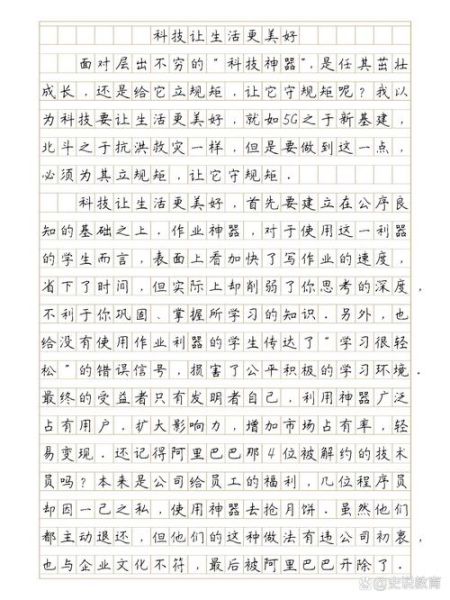 科技让生活更美好
面对层出不穷的“科技神器”,是任其茁壮
成长,还是给它立规矩,让它守规矩呢?我以
为科技要让生活更美好,就如5G之于新基建,
北斗之于抗洪救灾一样,但是要做到这一点,
必须为其立规矩,让它守规矩.
科技让生活更美好,首先要建立在公序良
知的基础之上,作业神器,对于使用这一利器
的学生而言,表面上看加快了写作业的速度,
省下了时间,但实际上却削弱了你思考的深度,
不利于你巩固、掌握所学习的知识.另外,也
给没有使用作业利器的学生传达了“学习很轻
松”的错误信号,损害了公平积极的学习环境.
最终的受益者只有发明者自己,利用神器广泛
占有用户.扩大影响力,增加市场占有率,轻
易变现.还记得阿里巴巴那4位被解约的技术
员吗?本来是公司给员工的福利,几位程序员
却因一己之私,使用神器去抢月饼.虽然他们
都主动退还,但他们的这种做法有违公司初衷,
也与企业文化不符,最后被阿里巴巴开除了.
@史说教育